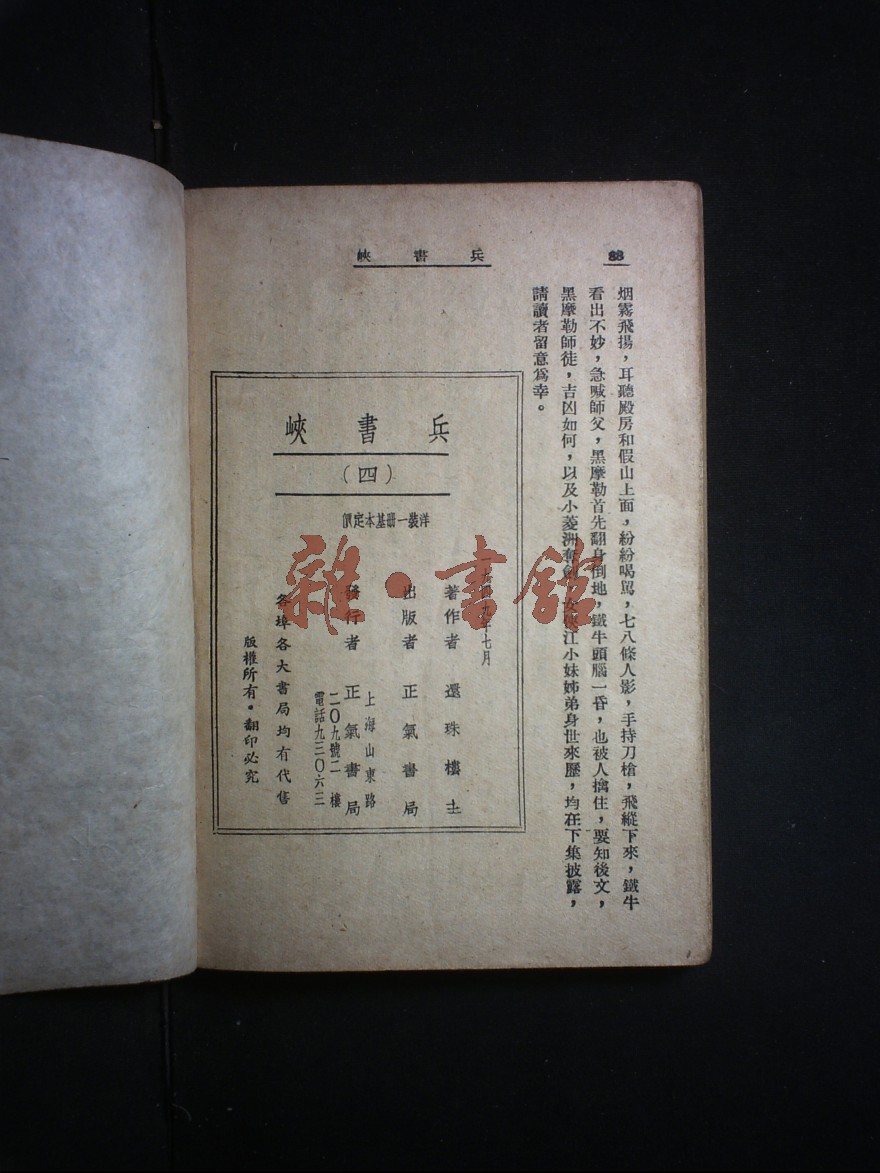 88
兵書峽
烟霧飛揚，耳聽殿房和假山上面，紛紛喝駡，七八條人影，手持刀槍，飛縱下來，鐵牛
看出不妙，急喊師父，黑摩勒首先翻身倒地，鐵牛頭腦一昏，也被人擒住，要知後文，
黑摩勒師徒，吉凶如何，以及小菱洲奪劍，女俠江小妹姊弟身世來歷，均在下集披露，
請讀者留意爲幸。
兵書峽
（四）
洋裝一册基本定價
一九四九年七月
著作者 還珠樓主
出版者 正氣書局
發行者 正氣書局
上海山東路
二〇九號二樓
電話九三〇六三
各埠各大書局均有代售
版權所有。翻印必究
雜·書館